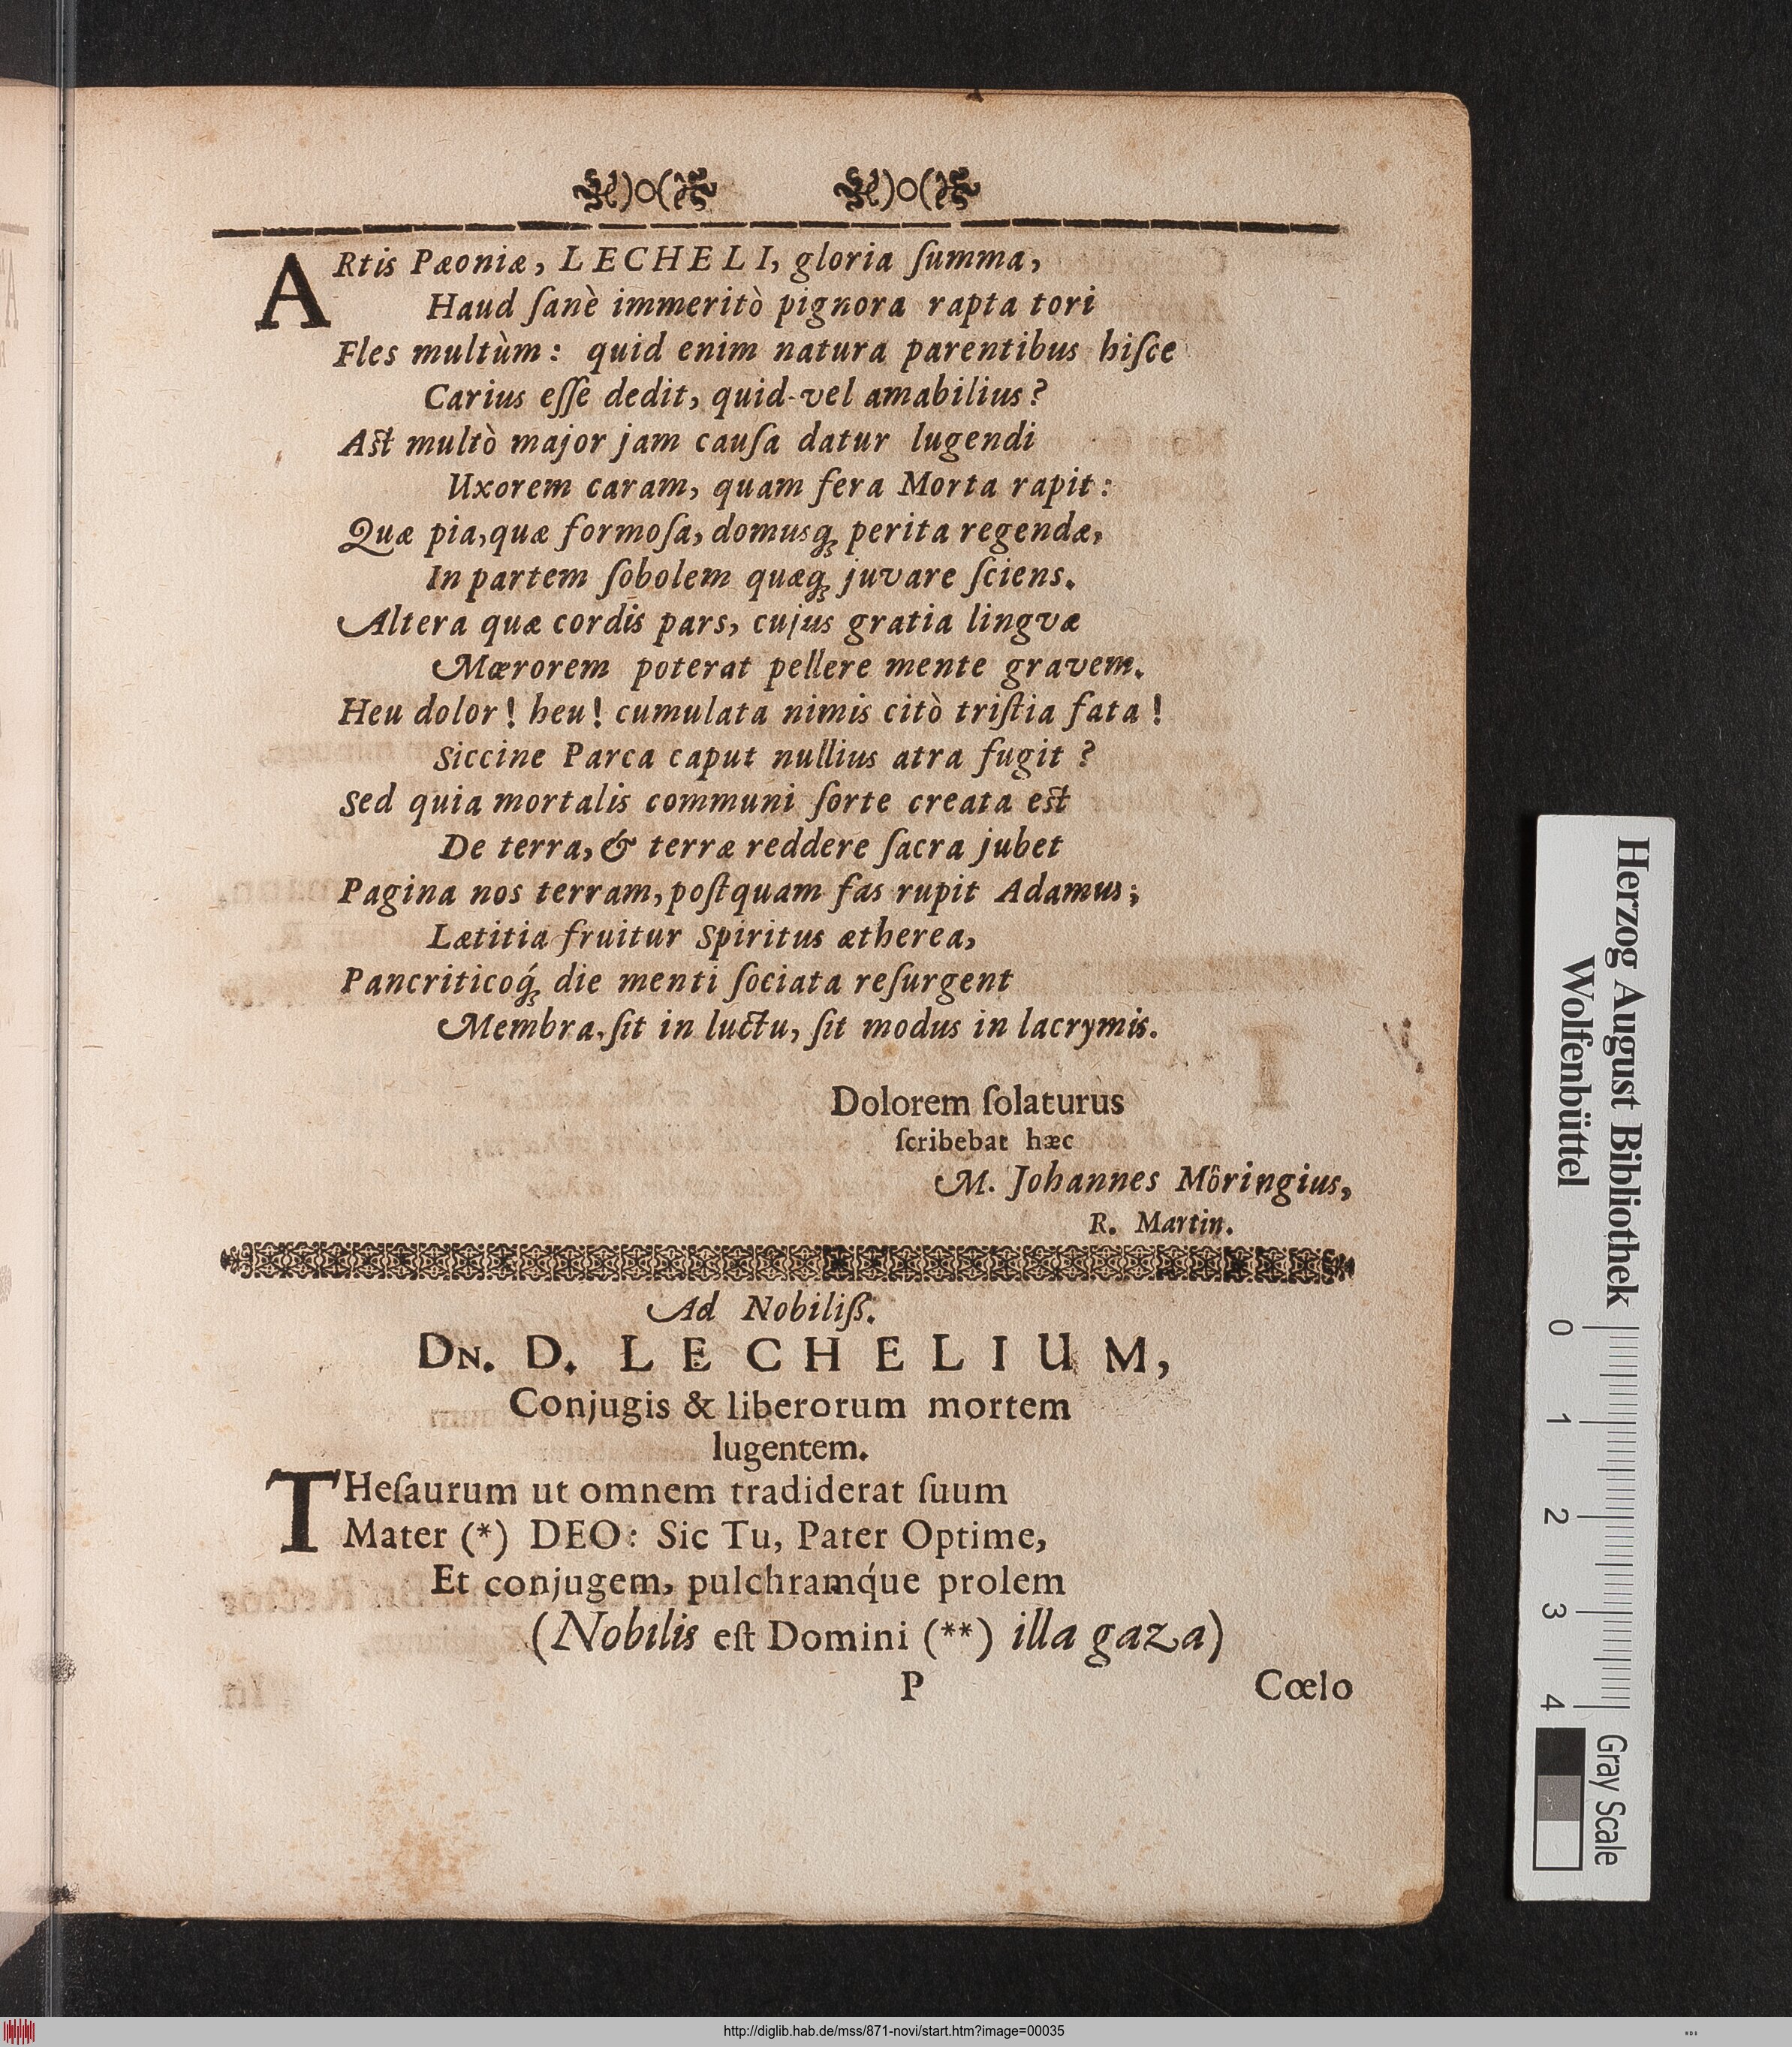 ARtis Pæoniæ, LECHELI, gloria ſumma,
Haud ſanè immeritò pignora rapta tori
Fles multùm: quid enim natura parentibus hiſce
Carius eſſe dedit, quid vel amabilius?
Aſt multò major jam cauſa datur lugendi
Uxorem caram, quam fera Morta rapit:
Quæ pia, quæ formoſa, domusq́ꝫ perita regendæ,
In partem ſobolem quæq́ꝫ juvare ſciens.
Altera quæ cordis pars, cujus gratia lingvæ
Mœrorem poterat pellere mente gravem.
Heu dolor! heu! cumulata nimis citò triſtia fata!
Siccine Parca caput nullius atra fugit?
Sed quia mortalis communi ſorte creata eſt
De terra, & terræ reddere ſacra jubet
Pagina nos terram, poſtquam fas rupit Adamus;
Lætitia fruitur Spiritus ætherea,
Pancriticoq́ꝫ die menti ſociata reſurgent
Membra, ſit in luctu, ſit modus in lacrymis.
Dolorem ſolaturus
ſcribebat hæc
M. Johannes Möringius,
R. Martin.
Ad Nobiliß.
DN. D. LECHELIUM,
Conjugis & liberorum mortem
lugentem.
THeſaurum ut omnem tradiderat ſuum
Mater (*) DEO: Sic Tu, Pater Optime,
Et conjugem, pulchramq́ue prolem
(Nobilis eſt Domini (**) illa gaza)
P Cœlo
Herzog August Bibliothek
Wolfenbüttel
0 1 2 3 4
Gray Scale
http://diglib.hab.de/mss/871-novi/start.htm?image=00035